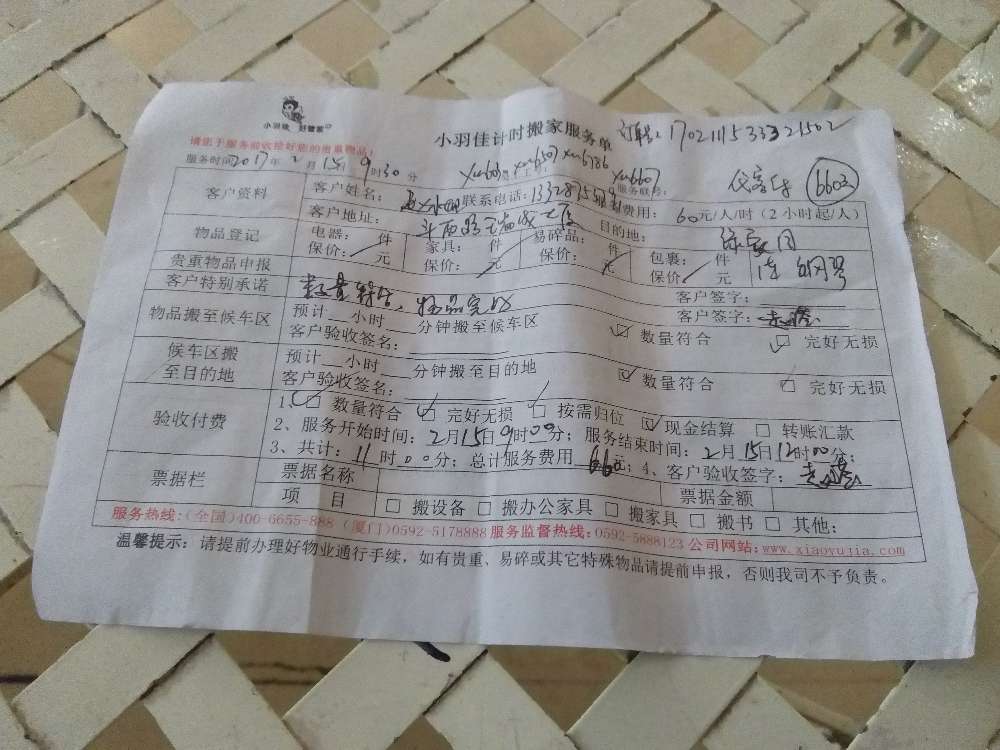 小羽佳 好管家
小羽佳计时搬家服务单 17021115333321502
请您于服务前收捡好您的贵重物品!
服务时间 2017年 2月15日 9时30分 服务载号: 6603
客户资料 客户姓名: 联系电话: 费用: 60元/人/时(2小时起/人)
客户地址: 目的地:
物品登记 电器: 件 家具: 件 易碎品: 件 包裹: 件
贵重物品申报 保价: 元 保价: 元 保价: 元 保价: 元
客户特别承诺 数量符合,物品完好 客户签字:
物品搬至候车区 预计 小时 分钟搬至候车区 客户签字:
客户验收签名: 数量符合 完好无损
候车区搬至目的地 预计 小时 分钟搬至目的地
客户验收签名: 数量符合 完好无损
验收付费 1、数量符合 完好无损 按需归位 现金结算 转账汇款
2、服务开始时间: 2月15日9时00分; 服务结束时间: 2月15日12时00分;
3、共计: 11时00分; 总计服务费用 660元; 4、客户验收签字:
票据栏 票据名称 票据金额
项目 搬设备 搬办公家具 搬家具 搬书 其他:
服务热线:(全国)400-6655-888 (厦门)0592-5178888 服务监督热线:0592-5888123 公司网站:www.xiaoyujia.com
温馨提示:请提前办理好物业通行手续,如有贵重、易碎或其它特殊物品请提前申报,否则我司不予负责。